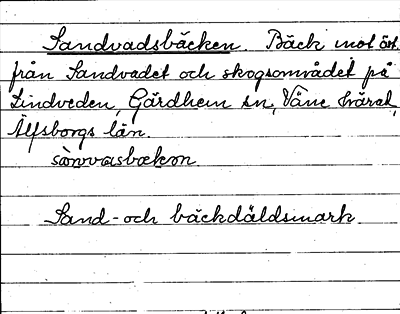 Sandvadsbäcken. Bäck mot öst
från Sandvadet och skogsområdet på
Lindveden, Gärdhem sn, Väne härad,
Älfsborgs län.
sànvasbækən
Sand- och bäckdäldsmark